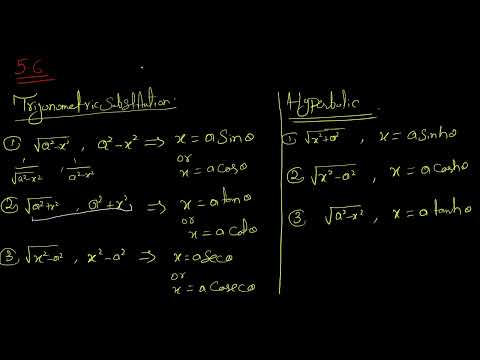 5.6
Trigonometric Substitution.
① √a²-x² , a²-x² ⇒ x = a Sinθ
or
x = a cosθ
1/√a²-x² , 1/a²-x²
② √a²+x² , a²+x² ⇒ x = a tanθ
or
x = a cotθ
③ √x²-a² , x²-a² ⇒ x = a secθ
or
x = a cosecθ
Hyperbolic.
① √x²+a² , x = a sinhθ
② √x²-a² , x = a coshθ
③ √a²-x² , x = a tanhθ